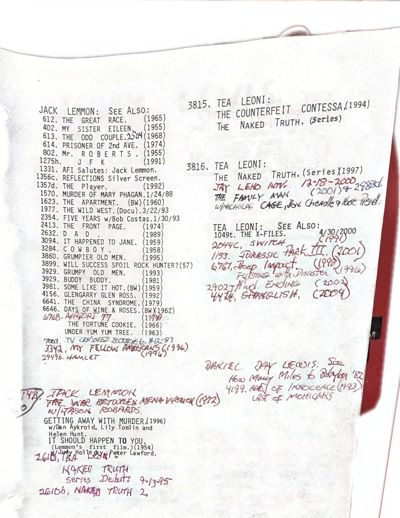 JACK LEMMON: SEE Also:
612. THE GREAT RACE. (1965)
402. MY SISTER EILEEN. (1955)
613. THE ODD COUPLE. (1968)
614. PRISONER OF 2nd AVE. (1974)
802. Mr. R O B E R T S . (1955)
1275h. J F K (1991)
1331. AFI Salutes: Jack Lemmon.
1356c. REFLECTIONS Silver Screen.
1357d. The Player. (1992)
1570. MURDER OF MARY PHAGAN.1/24/88
1623. THE APARTMENT. (BW)(1960)
1977. THE WILD WEST.(Docu).3/22/93
2354. FIVE YEARS w/Bob Costas.1/30/93
2413. THE FRONT PAGE. (1974)
2632. D A D . (1989)
3094. IT HAPPENED TO JANE. (1959)
3284. C O W B O Y . (1958)
3860. GRUMPIER OLD MEN. (1995)
3899. WILL SUCCESS SPOIL ROCK HUNTER?(57)
3929. GRUMPY OLD MEN. (1993)
3929. BUDDY BUDDY. (1981)
3981. SOME LIKE IT HOT.(BW)(1959)
4156. GLENGARRY GLEN ROSS. (1992)
6641. THE CHINA SYNDROME.(1979)
6646. DAYS OF WINE & ROSES.(BW)(1962)
AIRPORT 77
THE FORTUNE COOKIE. (1966)
UNDER YUM YUM TREE. (1963)
3342. MY FELLOW AMERICANS (1996)
2949c. HAMLET (1996)
JACK LEMMON
THE WAR BETWEEN MEN & WOMEN (1972)
W/JASON ROBARDS.
GETTING AWAY WITH MURDER.(1996)
w/Dan Aykroid, Lily Tomlin and
Helen Hunt.
IT SHOULD HAPPEN TO YOU.
(Lemmon's first film.)(1954)
w/Judy Holliday/Peter Lawford.
2610. TEA LEONI:
NAKED TRUTH
Series Debut: 9-13-95
2610b, NAKED TRUTH 2.
3815. TEA LEONI:
THE COUNTERFEIT CONTESSA.(1994)
THE NAKED TRUTH. (Series)
3816. TEA LEONI:
THE NAKED TRUTH.(Series)(1997)
JAY LENO INTV. 12-18-2000
THE FAMILY MAN (2001)
W/NICHOLAS CAGE, Don Cheadle &
TEA LEONI: SEE Also:
1049t. THE X-FILES. 4/30/2000
2044C. SWITCH (1991)
1153. JURASSIC PARK III (2001)
Deep Impact (1998)
FLIRTING with Disaster (1996)
HOLLYWOOD ENDING (2002)
SPANGLISH. (2004)
DANIEL DAY LEWIS. See
How Many Miles to Babylon '82
4199. AGE OF INNOCENCE (1993)
LAST OF MOHICANS